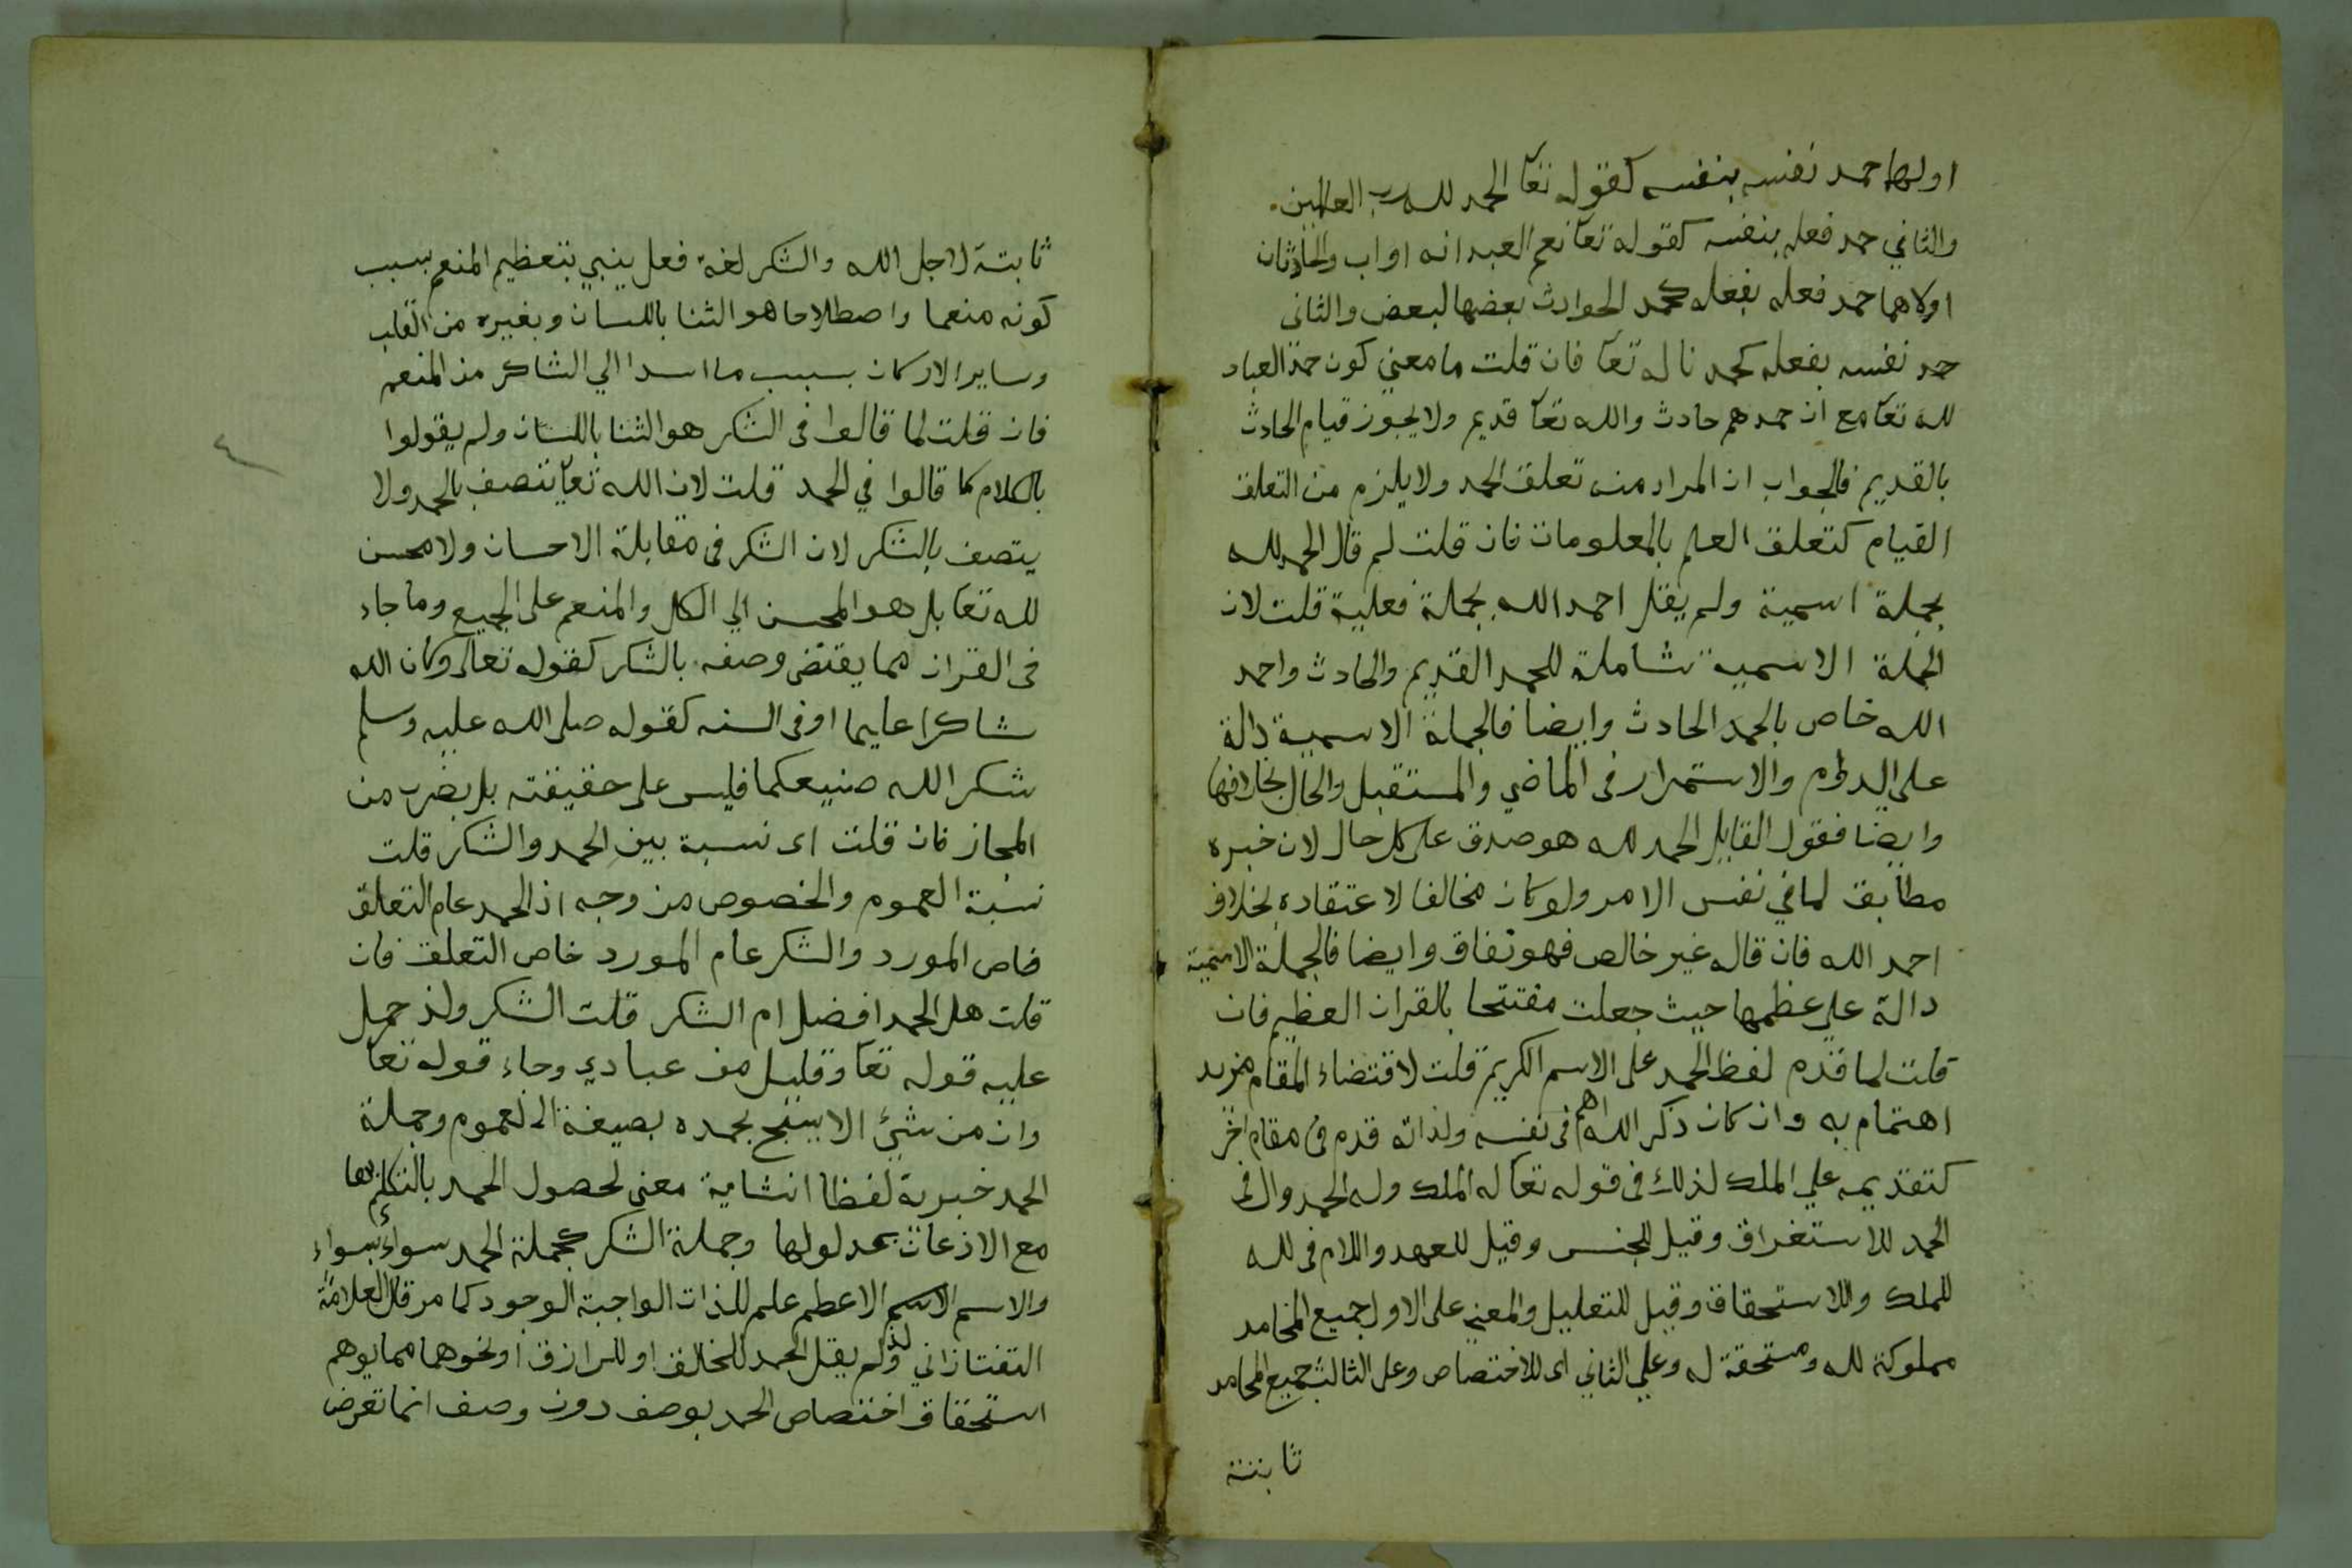 اولها حمد نفسه بنفسه كقوله تعا الحمد لله رب العالمين
والثاني حمد فعله بنفسه كقوله تعا نعم العبد انه اواب والحادثان
اولاهما حمد فعله بفعله كحمد الحوادث بعضها لبعض والثاني
حمد نفسه بفعله كحمدنا له تعا فان قلت ما معني كون حمد العباد
لله تعا مع ان حمدهم حادث والله تعا قديم ولا يجوز قيام الحادث
بالقديم فالجواب ان المراد منه تعلق الحمد ولا يلزم من التعلق
القيام كتعلق العلم بالمعلومات فان قلت لم قال الحمد لله
بجملة اسمية ولم يقل احمد الله بجملة فعلية قلت لان
الجملة الاسمية شاملة للحمد القديم والحادث واحمد
الله خاص بالحمد الحادث وايضا فالجملة الاسمية دالة
على الدوام والاستمرار فى الماضي والمستقبل والحال بخلافها
وايضا فقول القايل الحمد لله هو صدق على كل حال لان خبره
مطابق لما في نفس الامر ولو كان مخالفا لاعتقاده بخلاف
احمد الله فان قاله غير خالص فهو نفاق وايضا فالجملة الاسمية
دالة علي عظمها حيث جعلت مفتتحا بالقران العظيم فان
قلت لما قدم لفظ الحمد على الاسم الكريم قلت لاقتضاء المقام مزيد
اهتمام به وان كان ذكر الله اهم فى نفسه ولذاته قدم فى مقام اخر
كتقديمه علي الملك لذلك فى قوله تعا له الملك وله الحمد وال فى
الحمد للاستغراق وقيل للجنس وقيل للعهد واللام فى لله
للملك وللاستحقاق وقيل للتعليل والمعني على الاول جميع المحامد
مملوكة لله ومستحقة له وعلي الثاني اى للاختصاص وعلى الثالث جميع المحامد
ثابتة
ثابتة لاجل الله والشكر لغة فعل ينبي بتعظيم المنعم بسبب
كونه منعما واصطلاحا هو الثنا باللسان وبغيره من القلب
وساير الاركان بسبب ما اسدا الي الشاكر من المنعم
فان قلت لما قالوا فى الشكر هو الثنا باللسان ولم يقولوا
بالكلام كما قالوا في الحمد قلت لان الله تعا يتصف بالحمد ولا
يتصف بالشكر لان الشكر فى مقابلة الاحسان ولا محسن
لله تعا بل هو المحسن الي الكل والمنعم على الجميع وما جاء
فى القران مما يقتضى وصفه بالشكر كقوله تعالى وكان الله
شاكرا عليما او فى السنه كقوله صلى الله عليه وسلم
شكر الله صنيعكما فليس على حقيقته بل بضرب من
المجاز فان قلت اى نسبة بين الحمد والشكر قلت
نسبة العموم والخصوص من وجه اذ الحمد عام التعلق
خاص المورد والشكر عام المورد خاص التعلق فان
قلت هل الحمد افضل ام الشكر قلت الشكر ولذ حمل
عليه قوله تعا وقليل من عبادي وجاء قوله تعا
وان من شيئ الا يسبح بحمده بصيغة العموم وجملة
الحمد خبرية لفظا انشاية معنى لحصول الحمد بالتكلم بها
مع الاذعان بمدلولها وجملة الشكر كجملة الحمد سواء بسواء
والاسم الاسم الاعظم علم للذات الواجبة الوجود كما مر قال العلامة
التفتازاني ولذ لم يقل الحمد للخالق او للرازق او نحوهما مما يوهم
استحقاق اختصاص الحمد بوصف دون وصف انما تعرض